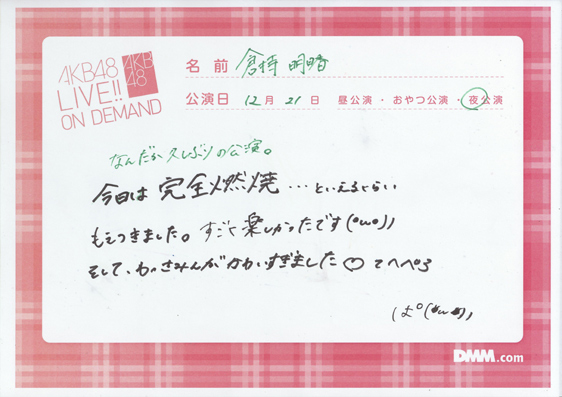 AKB48
LIVE!!
ON DEMAND
AKB
48
名前 倉持 明日香
公演日 12月 21日 昼公演・おやつ公演・夜公演
なんだか久しぶりの公演。
今日は完全燃焼…といえるくらい
もえつきました。すごく楽しかったです(°ω°))
そして、わさみんがかわいすぎました♡てへぺろ
ぱ°(°ω°))
DMM.com